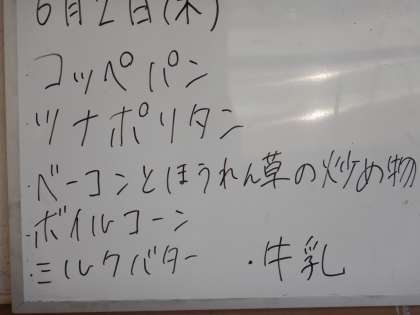 6月2日(木)
コッペパン
・ツナポリタン
・ベーコンとほうれん草の炒め物
・ボイルコーン
・ミルクバター ・牛乳